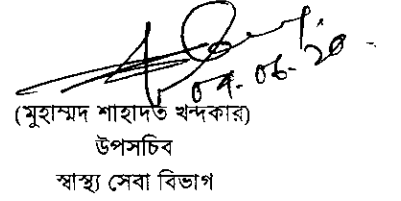 ০৭-০৬-২০
(মুহাম্মদ শাহাদত খন্দকার)
উপসচিব
স্বাস্থ্য সেবা বিভাগ